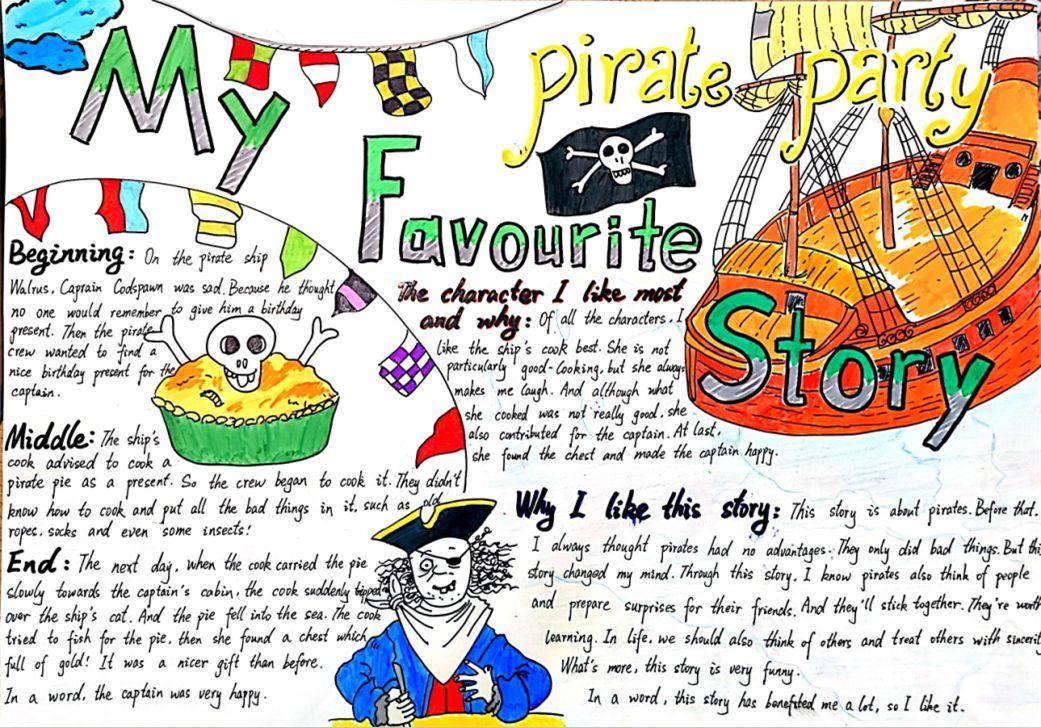 My
Favourite
pirate party
Story
Beginning: On the pirate ship
Walrus, Captain Codspawn was sad. Because he thought
no one would remember to give him a birthday
present. Then the pirate
crew wanted to find a
nice birthday present for the
captain.
Middle: The ship's
cook advised to cook a
pirate pie as a present. So the crew began to cook it. They didn't
know how to cook and put all the bad things in it, such as old
ropes, socks and even some insects!
End: The next day, when the cook carried the pie
slowly towards the captain's cabin, the cook suddenly tripped
over the ship's cat. And the pie fell into the sea. The cook
tried to fish for the pie, then she found a chest which
full of gold! It was a nicer gift than before.
In a word, the captain was very happy.
The character I like most
and why: Of all the characters, I
like the ship's cook best. She is not
particularly good-looking, but she always
makes me laugh. And although what
she cooked was not really good, she
also contributed for the captain. At last,
she found the chest and made the captain happy.
Why I like this story: This story is about pirates. Before that,
I always thought pirates had no advantages. They only did bad things. But this
story changed my mind. Through this story, I know pirates also think of people
and prepare surprises for their friends. And they'll stick together. They're worth
learning. In life, we should also think of others and treat others with sincerity
What's more, this story is very funny.
In a word, this story has benefited me a lot, so I like it.